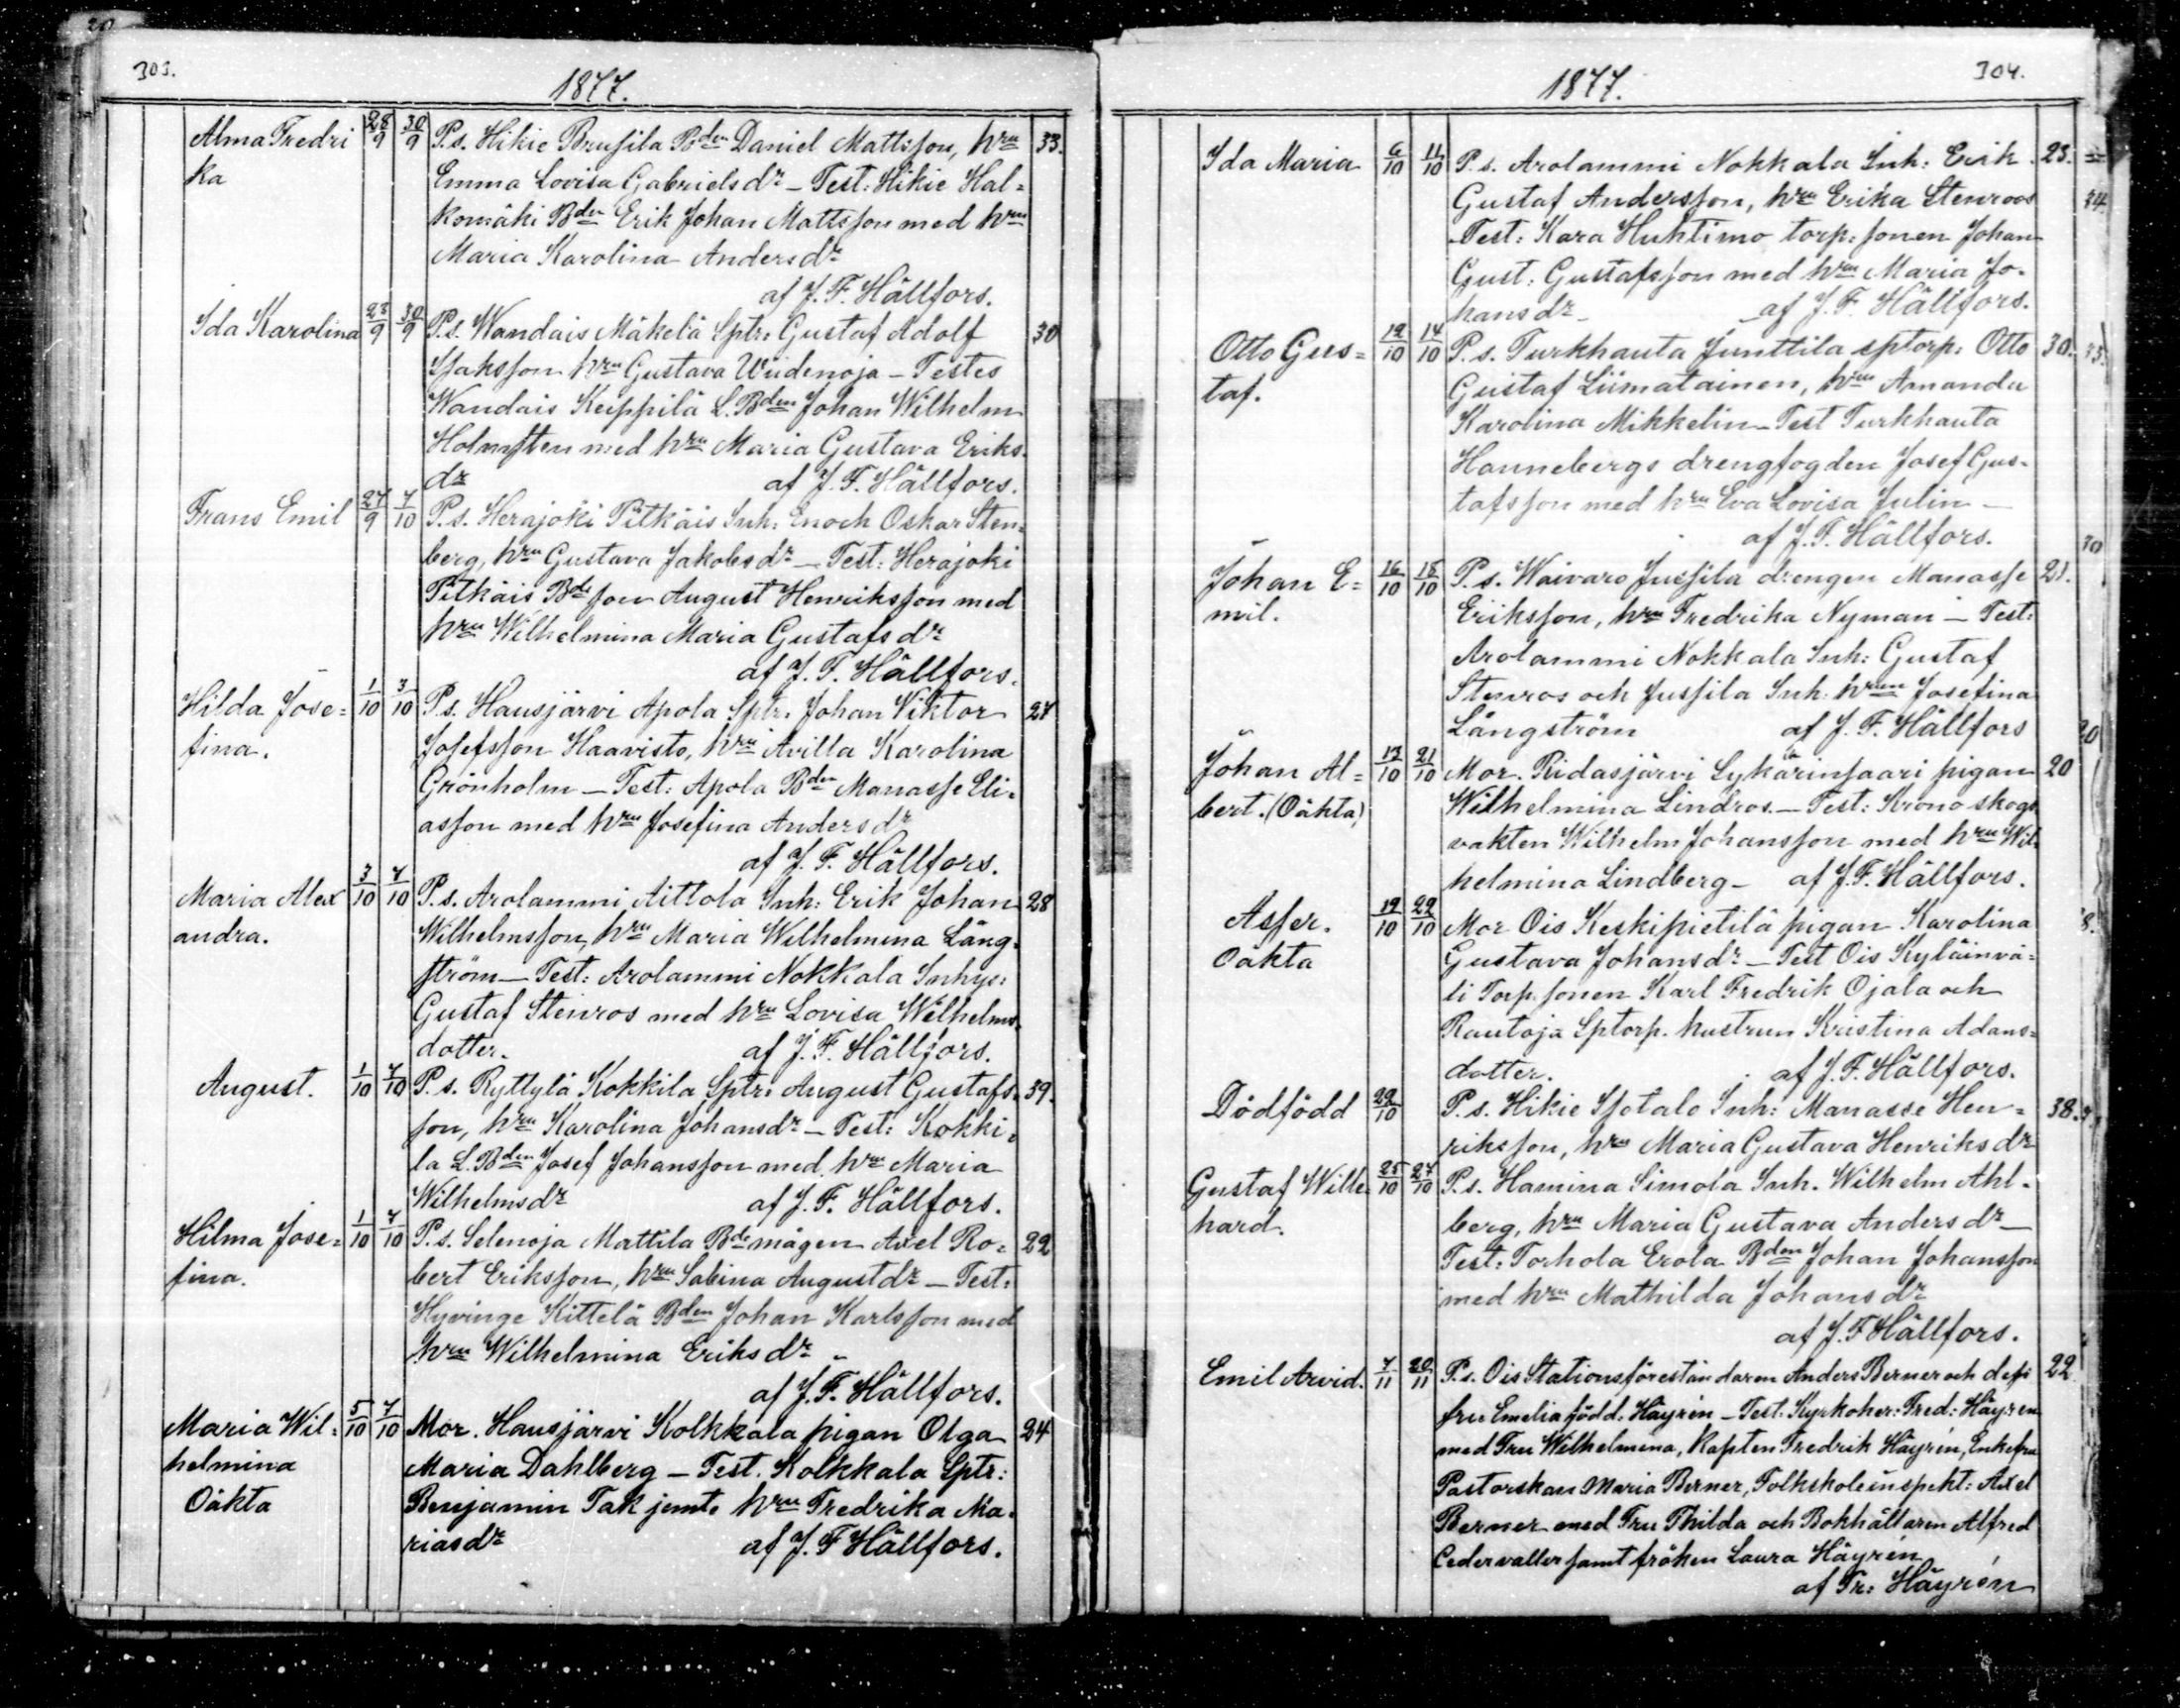 303.
1877.
Alma Fredri 28/9 30/9 P.s. Hikie Brusila Bden Daniel Mattsson, hru 33.
ka Emma Lovisa Gabrielsdr – Test: Hikie Hal=
komäki Bden Erik Johan Mattsson med hru
Maria Karolina Andersdr
af J. F. Hällfors.
Ida Karolina 23/9 30/9 P.s. Wandais Mäkelä Sptr: Gustaf Adolf 30
Isaksson hru Gustava Uudenoja – Testes
Wandais Keippilä L. Bden Johan Wilhelm
Holmsten med hru Maria Gustava Eriks.
dr af J. F. Hällfors.
Frans Emil 27/9 7/10 P.s. Herajoki Pitkäis Inh: Enoch Oskar Sten=
berg, hru Gustava Jakobsdr – Test: Herajoki
Pitkäis Bdeson August Henriksson med
hru Wilhelmina Maria Gustafsdr
af J. F. Hällfors.
Hilda Jose= 1/10 3/10 P.s. Hausjärvi Apola Sptr: Johan Viktor 27
fina. Josefsson Haavisto, hru Avilla Karolina
Grönholm – Test: Apola Bden Manasse Eli=
asson med hru Josefina Andersdr
af J. F. Hällfors.
Maria Alex 3/10 7/10 P.s. Arolammi Aittola Inh: Erik Johan 28
andra. Wilhelmsson, hru Maria Wilhelmina Läng=
ström – Test: Arolammi Nokkala Inhys:
Gustaf Stenros med hru Lovisa Wilhelms
dotter. af J. F. Hällfors.
August. 1/10 7/10 P.s. Ryttylä Kokkila Sptr: August Gustafs= 39.
son, hru Karolina Johansdr – Test: Kokki=
la L. Bden Josef Johansson med hru Maria
Wilhelmsdr af J. F. Hällfors.
Hilma Jose= 1/10 7/10 P.s. Selenoja Mattila Bdemågen Axel Ro= 22
fina. bert Eriksson, hru Sabina Augustdr – Test:
Hyvinge Kittelä Bden Johan Karlsson med
hru Wilhelmina Eriksdr –
af J. F. Hällfors.
Maria Wil= 5/10 7/10 Mor. Hausjärvi Kolkkala pigan Olga 24
helmina Maria Dahlberg – Test. Kolkkala Sptr:
Oäkta Benjamin Tak jemte hru Fredrika Ma=
riasdr af J. F Hällfors.
304.
1877.
Ida Maria 6/10 11/10 P.s. Arolammi Nokkala Inh: Erik 23.
Gustaf Andersson, hru Erika Stenroos 34.
Test: Kara Huhtimo torp: sonen Johan
Gust: Gustafsson med hru Maria Jo=
hansdr – af J. F. Hällfors.
Otto Gus= 12/10 14/10 P.s. Turkhauta Junttila sptorp: Otto 30.
taf. Gustaf Liimatainen, hru Amanda
Karolina Mikkelin – Test Turkhauta
Hannebergs drengfogden Josef Gus=
tafsson med hru Eva Lovisa Julin –
af J. F. Hällfors.
Johan E= 16/10 18/10 P.s. Waivaro Jussila drengen Manasse 21.
mil. Eriksson, hru Fredrika Nyman – Test:
Arolammi Nokkala Inh: Gustaf
Stenros och Jussila Inh. hrun Josefina
Långström af J. F. Hällfors 20
Johan Al= 13/10 21/10 Mor. Ridasjärvi Lykärinsaari pigan 20
bert. (Oäkta) Wilhelmina Lindros. – Test: Krono skogs
vakten Wilhelm Johansson med hru Wil=
helmina Lindberg – af J. F. Hällfors.
Asser. 19/10 22/10 Mor Ois Keskipietilä pigan Karolina
Oäkta Gustava Johansdr – Test Ois Kyläinvä=
li Torp. sonen Karl Fredrik Ojala och
Rautoja Sptorp. hustrun Kristina Adams=
dotter. af J. F. Hällfors.
Dödfödd 22/10 P.s. Hikie Isotalo Inh: Manasse Hen= 38.
riksson, hru Maria Gustava Henriksdr
Gustaf Wille 25/10 27/10 P.s. Hamina Simola Inh. Wilhelm Ahl=
hard. berg, hru Maria Gustava Andersdr –
Test: Torhola Erola Bden Johan Johansson
med hru Mathilda Johansdr
af J. F Hällfors.
Emil Arvid. 7/11 20/11 P.s. Ois Stationsföreståndaren Anders Berner och dess 22
fru Emelia född: Häyrén – Test: Kyrkoher: Fred: Häyrén
med Fru Wilhelmina, Kapten Fredrik Häyrén, Enkefru
Pastorskan Maria Berner, Folkskoleinspekt: Axel
Berner med Fru Thilda och Bokhållaren Alfred
Cedervaller samt fröken Laura Häyrén
af Fr: Häyrén